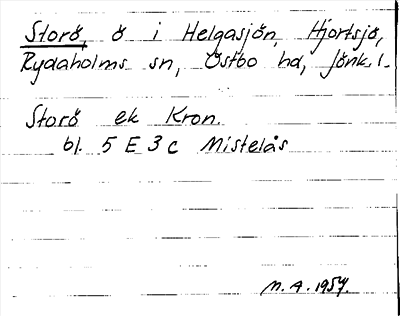 Storö, ö i Helgasjön, Hjortsjö,
Rydaholms sn, Östbo hd, Jönk. l.
Storö ek Kron.
bl. 5 E 3 c Mistelås
M. A. 1954.